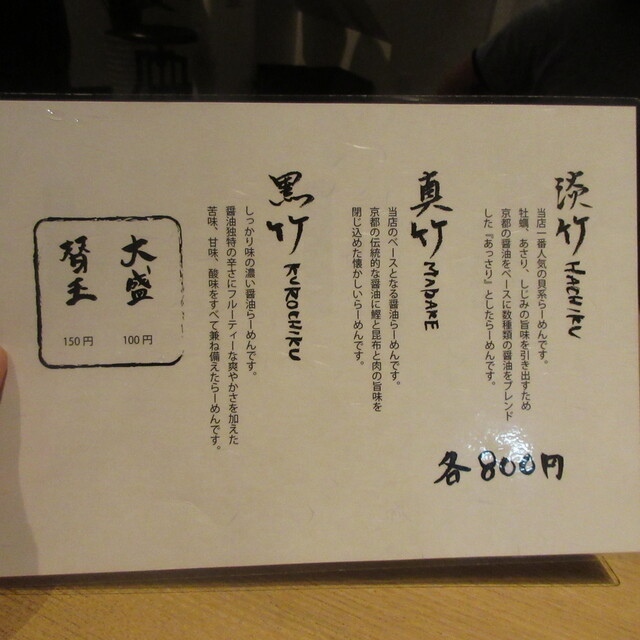 淡竹 HACHIKU
当店一番人気の貝系らーめんです。
牡蠣、あさり、しじみの旨味を引き出すため
京都の醤油をベースに数種類の醤油をブレンド
した『あっさり』としたらーめんです。
真竹 MADAKE
当店のベースとなる醤油らーめんです。
京都の伝統的な醤油に鰹と昆布と肉の旨味を
閉じ込めた懐かしいらーめんです。
黒竹 KUROCHIKU
しっかり味の濃い醤油らーめんです。
醤油独特の辛さにフルーティーな爽やかさを加えた
苦味、甘味、酸味をすべて兼ね備えたらーめんです。
各800円
大盛 100円
替玉 150円